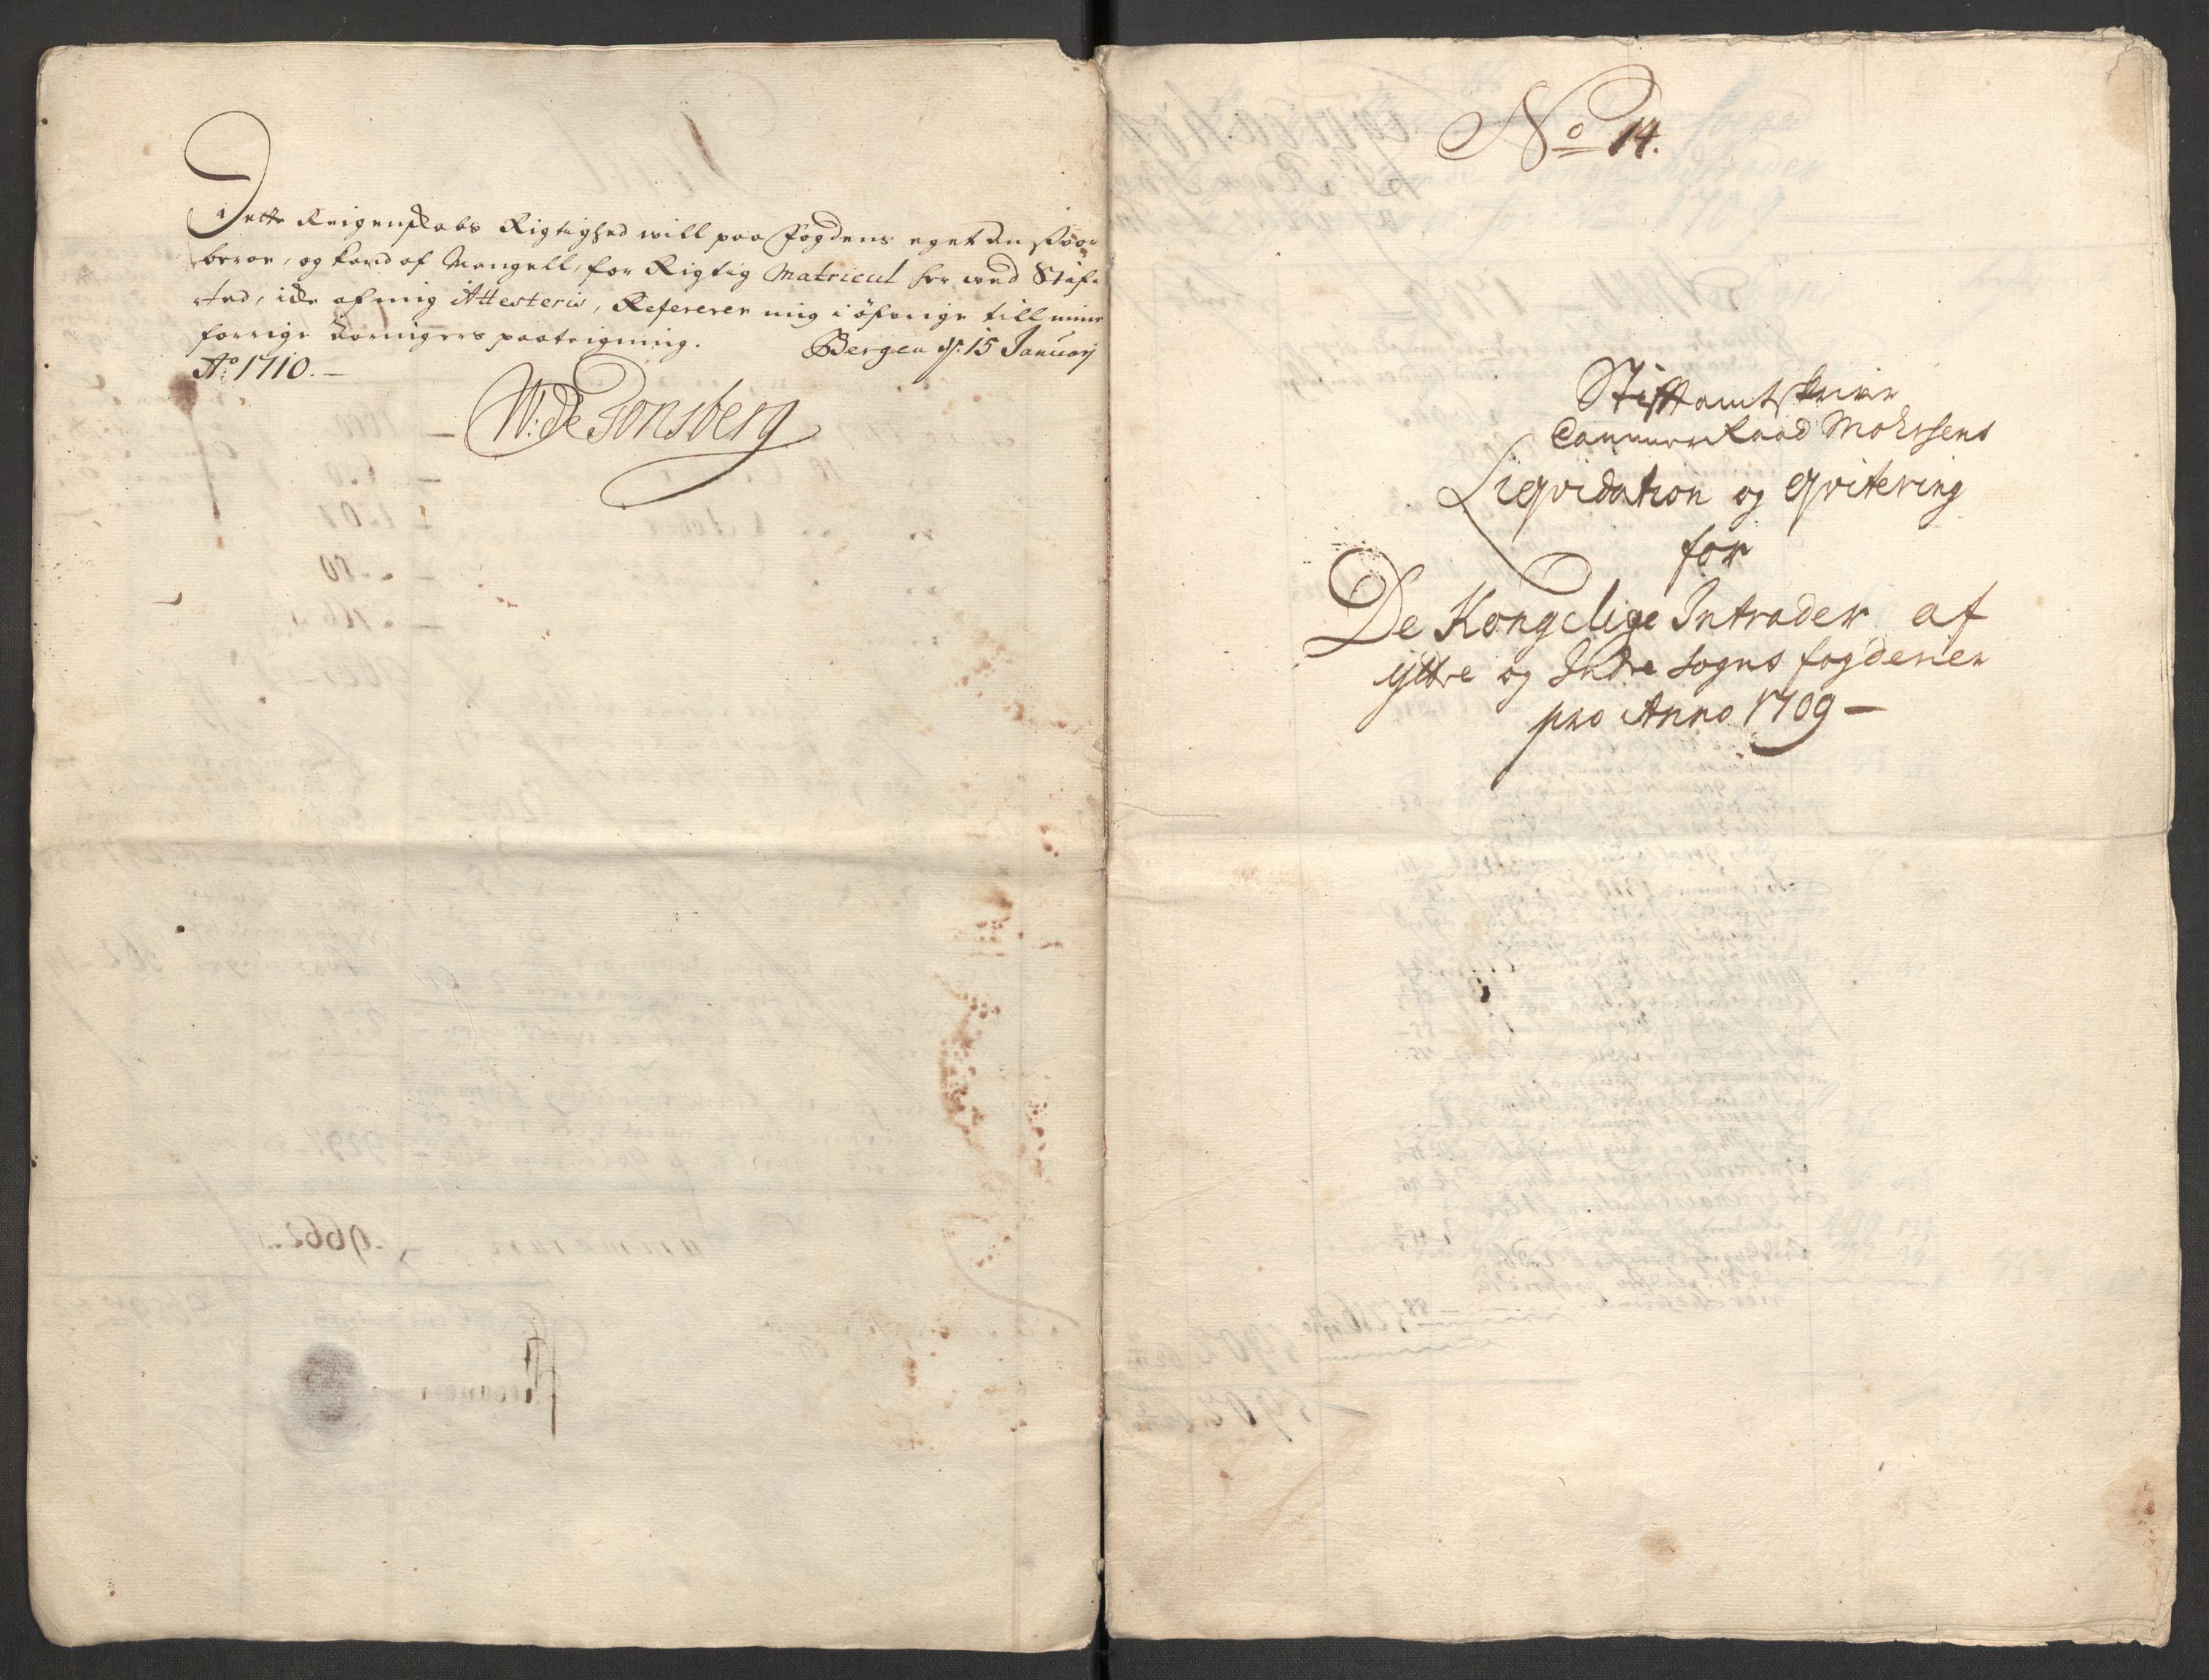 Dette Reigenskabs Rigtighed will paa Fogdens eget ansvar
beroe, og kand af Mangell, for Rigtig Matricul her ved Stif-
sted, icke af mig Attesteris, Refererer mig i öfverige till min
forrige paateigning. Bergen d: 15 January
Ao 1710.
W: De Tonsberg
No 14.
Stifftamtskrifver
Cammer Raad Mohrsens
Liqvidation og Qvitering
for
De Kongelige Intrader af
Yttre og Indre Sogns fogderier
pro Anno 1709